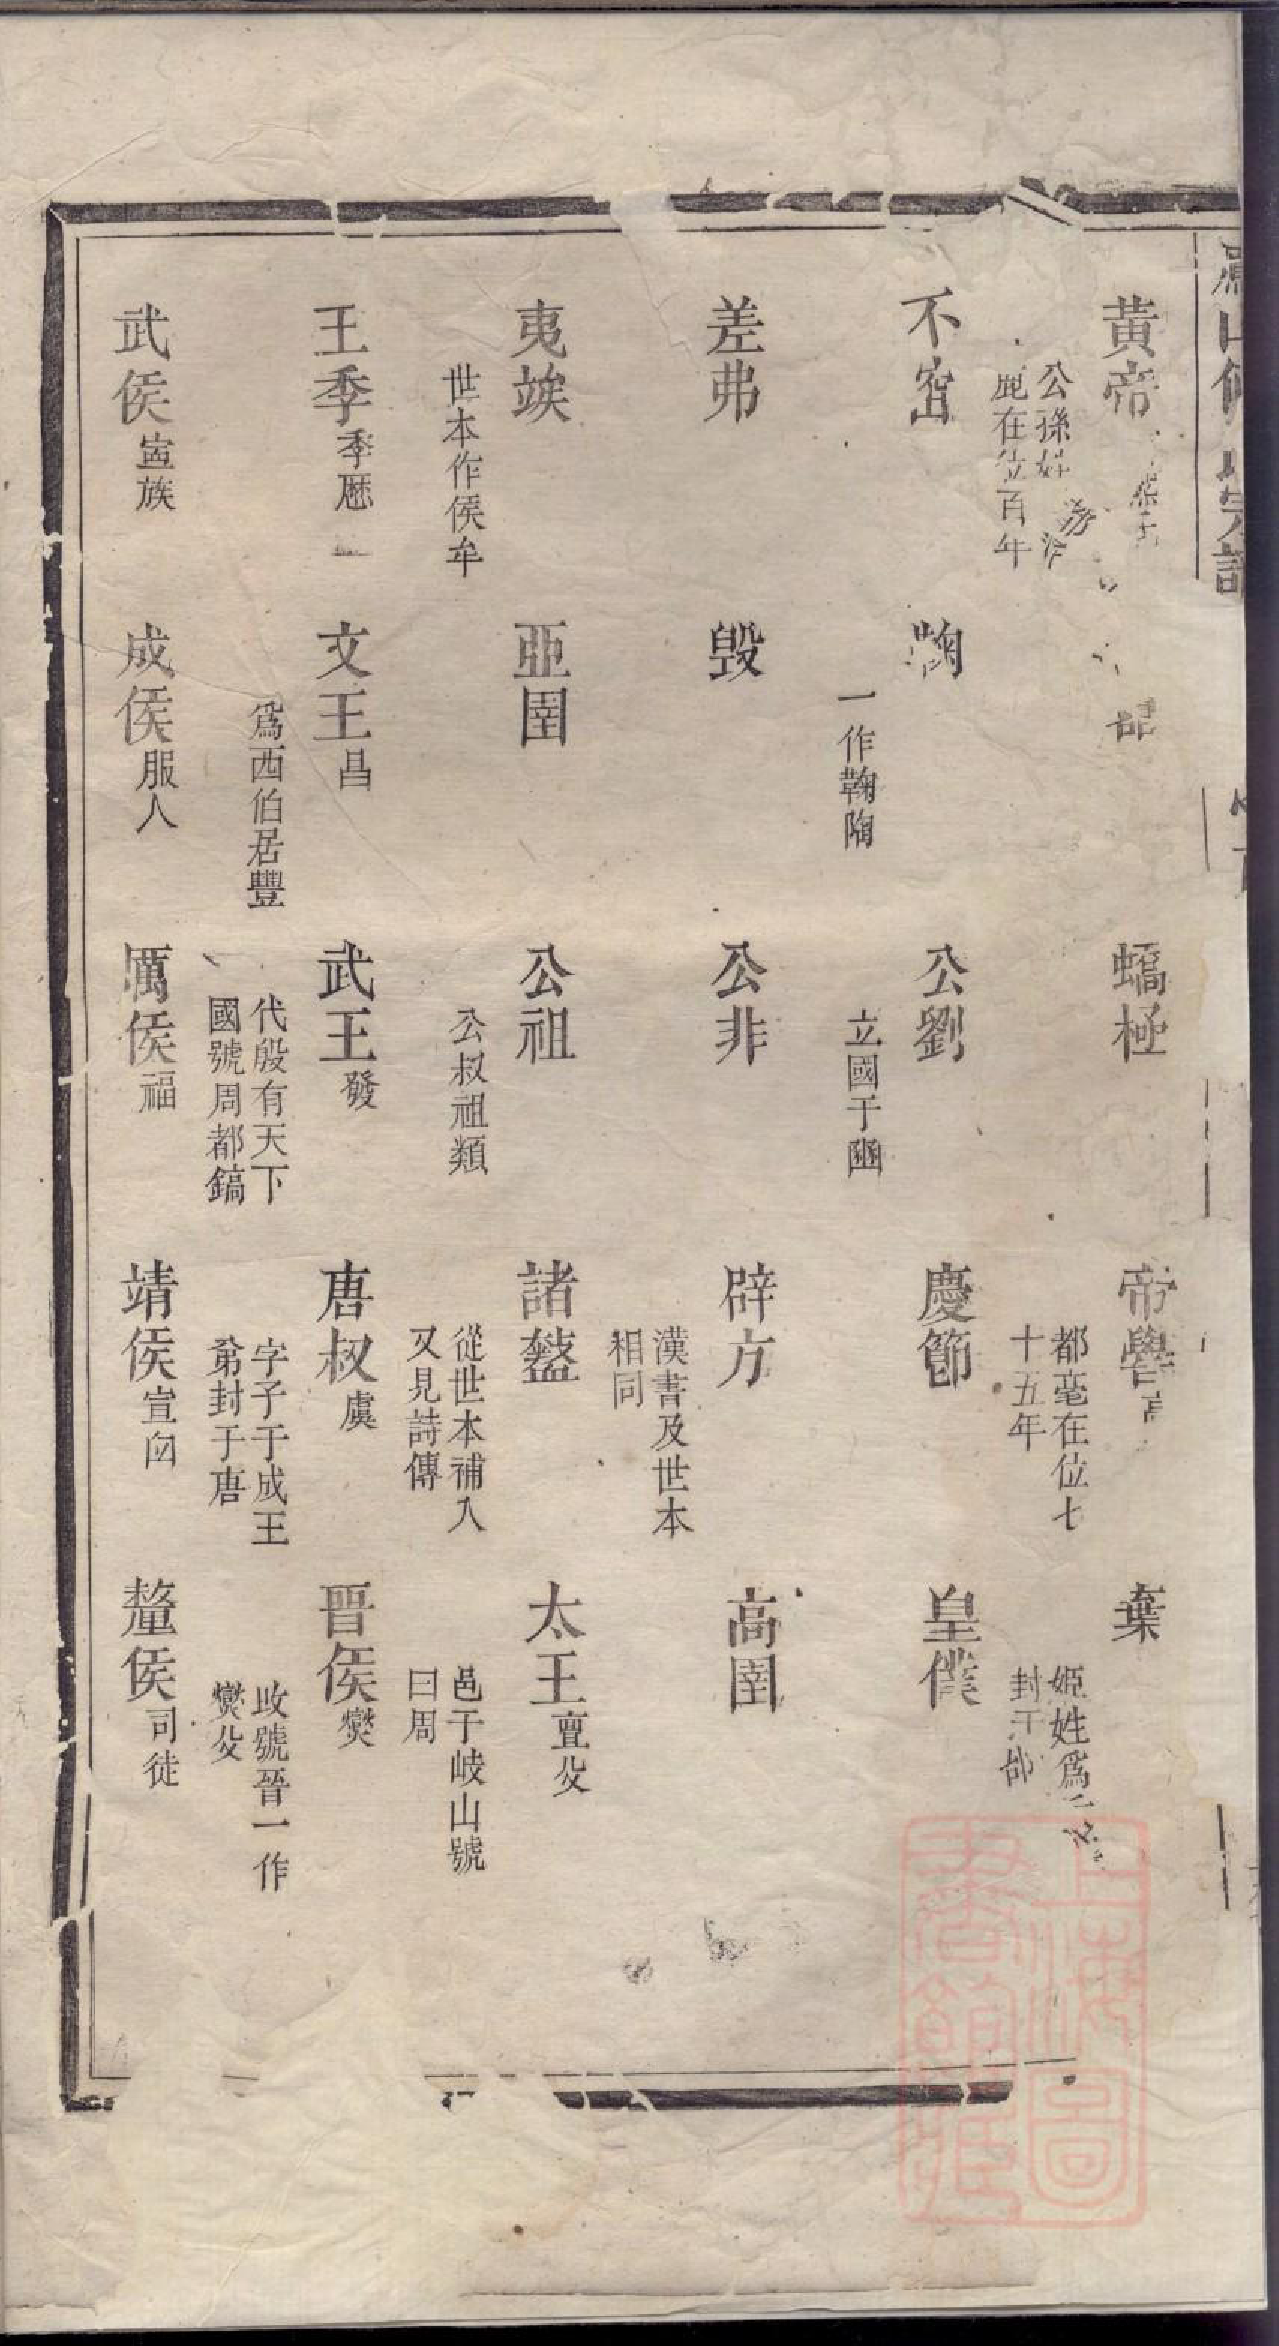 黃帝
公孫姓
鹿在位百年
蟜極
帝嚳
都亳在位七
十五年
棄
姬姓爲
封于邰
不窋
鞠
一作鞠陶
公劉
立國于豳
慶節
皇僕
差弗
毀
公非
辟方
漢書及世本
相同
高圉
夷竢
世本作侯牟
亞圉
公祖
公叔祖類
諸盩
從世本補入
又見詩傳
太王亶父
邑于岐山號
曰周
王季季歷
文王昌
爲西伯居豐
武王發
代殷有天下
國號周都鎬
唐叔虞
字子于成王
弟封于唐
晉侯燮
改號晉一作
燮父
武侯寍族
成侯服人
厲侯福
靖侯宜臼
釐侯司徒
上海圖
書館藏